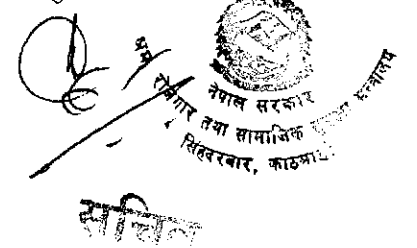 नेपाल सरकार
श्रम रोजगार तथा सामाजिक सुरक्षा मन्त्रालय
सिंहदरबार, काठमाडौं
सचिव